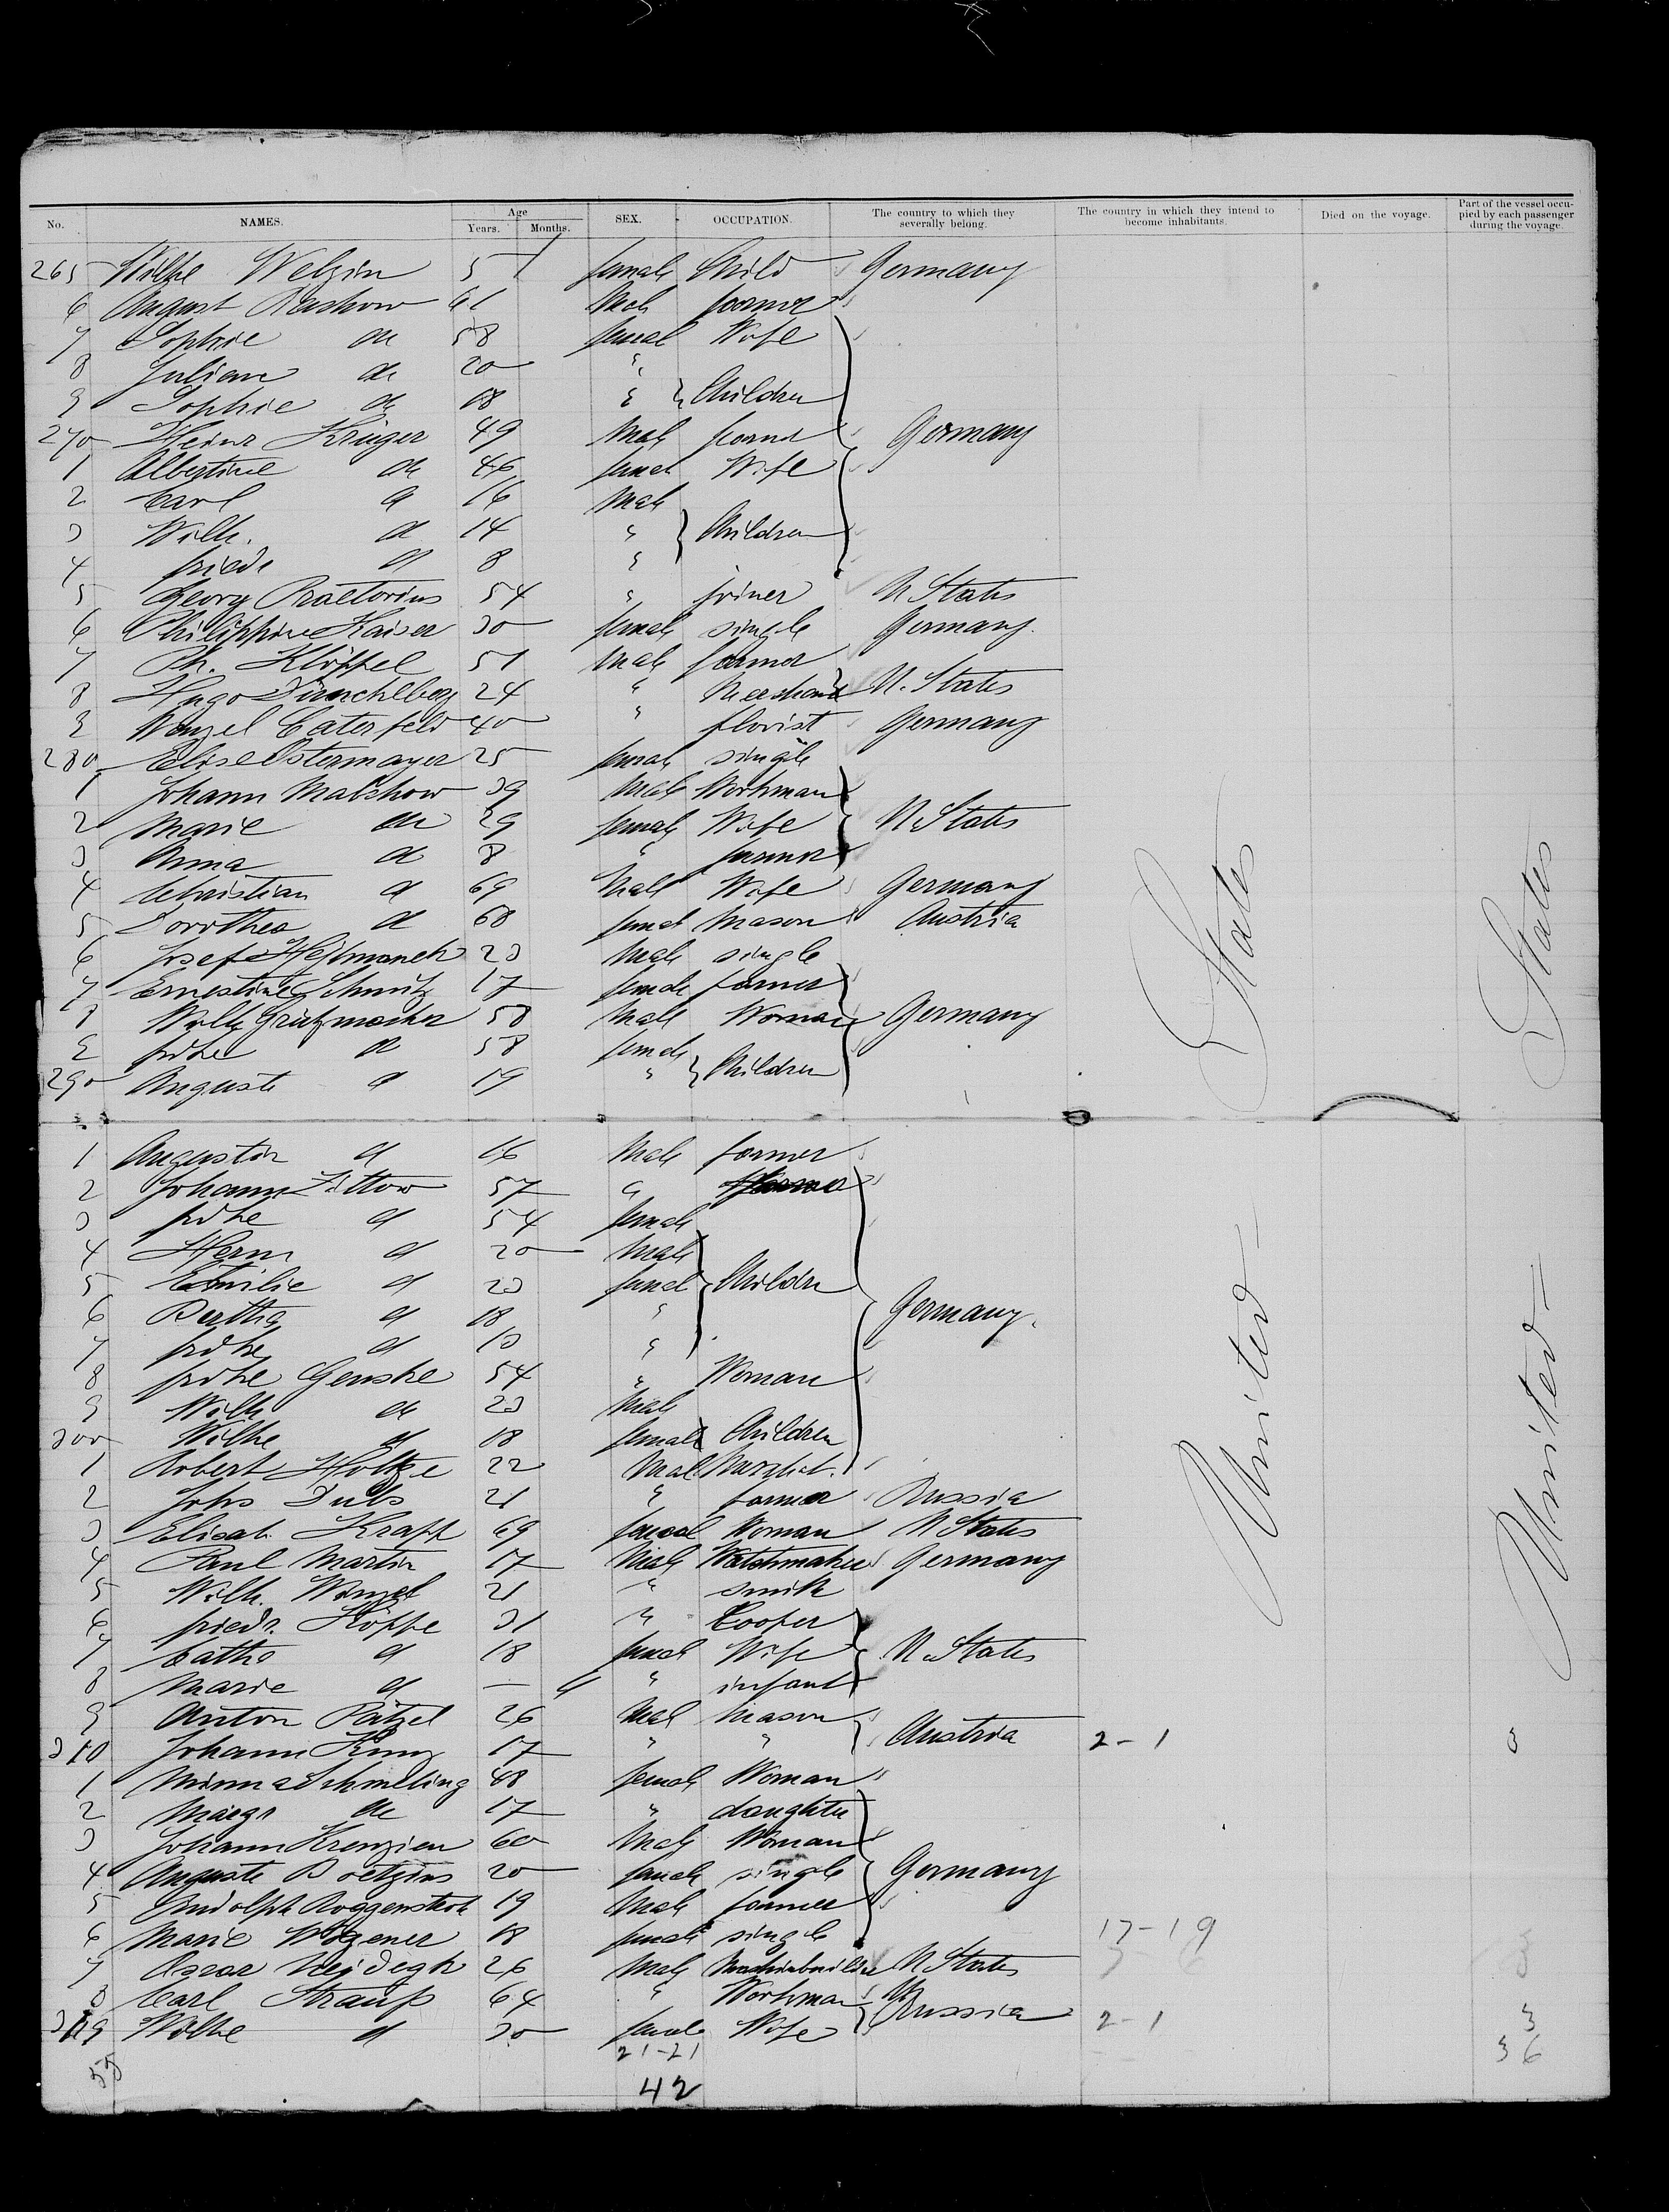 No. NAMES. Age Years. Months. SEX. OCCUPATION. The country to which they severally belong. The country in which they intend to become inhabitants. Died on the voyage. Part of the vessel occupied by each passenger during the voyage.
265 Wilhe Welzin 5 female Child Germany
6 August Rashow 61 Male farmer
7 Sophie do 58 femal Wife
8 Juliane do 20 "
9 Sophie do 18 " Children
270 Heinr Krüger 49 Male farmer Germany
1 Albertine do 46 femal Wife
2 Carl d 16 Male
3 Wilh. d 14 " Children
4 friedr d 8 "
5 Georg Praetorius 54 " joiner U States
6 Philippine Kaiser 30 female single Germany.
7 Ph. Klöppel 51 Male farmer
8 Hugo 24 " Merchand U. States
9 Wenzel Caterfeld 40 " florist Germany
280 Elise Ostermayer 25 female single
1 Johann Malchow 39 Male Workman
2 Marie do 29 female Wife U States
3 Anna d 8 " farmer
4 Christian d 69 Male Wife Germany
5 Dorothea d 68 femal Mason Austria
6 Josef Hejlmanek 23 Male single
7 Ernestine Schmitz 17 female farmer
8 Wilh Grützmacher 58 Male Woman Germany
9 fridke d 58 female
290 Auguste d 19 " Children
1 Augustin d 16 Male farmer
2 Johann Zittow 57 "
3 fridke d 54 female
4 Herm d 20 Male
5 Emilie d 23 femal Children
6 Bertha d 18 " Germany.
7 fridke d 10 "
8 fridke Genske 54 " Woman
9 Wilh do 23 Male
300 Wilhe d 18 female Children
1 Robert Holtze 22 Mal
2 Johs Duls 21 " farmer Russia
3 Elisab. Krapp 69 femal Woman U States
4 Paul Martin 17 Male Watchmaker Germany
5 Wilh. Wenzel 21 " smith
6 friedr. Köppe 31 " Cooper
7 Cathe d 18 femal Wife U. States
8 Marie d — " infant
9 Anton Pätzel 26 Mal Mason
310 Johann Kunz 17 " " Austria 2-1 3
1 Minna Schmeling 48 female Woman
2 Margr do 17 " daughter
3 Johann Krenzien 60 Male Woman
4 Auguste Boetzius 20 female single Germany
5 Rudolph Roggenstroh 19 Male farmer
6 Marie Wegener 18 female single 17-19
7 Oscar Nejdegk 26 Male Machinbuilder U States
8 Carl Straup 64 " Workman
319 Wilhe d 30 female Wife Russia 2-1 3
55 21-21 36
42
United States
United States